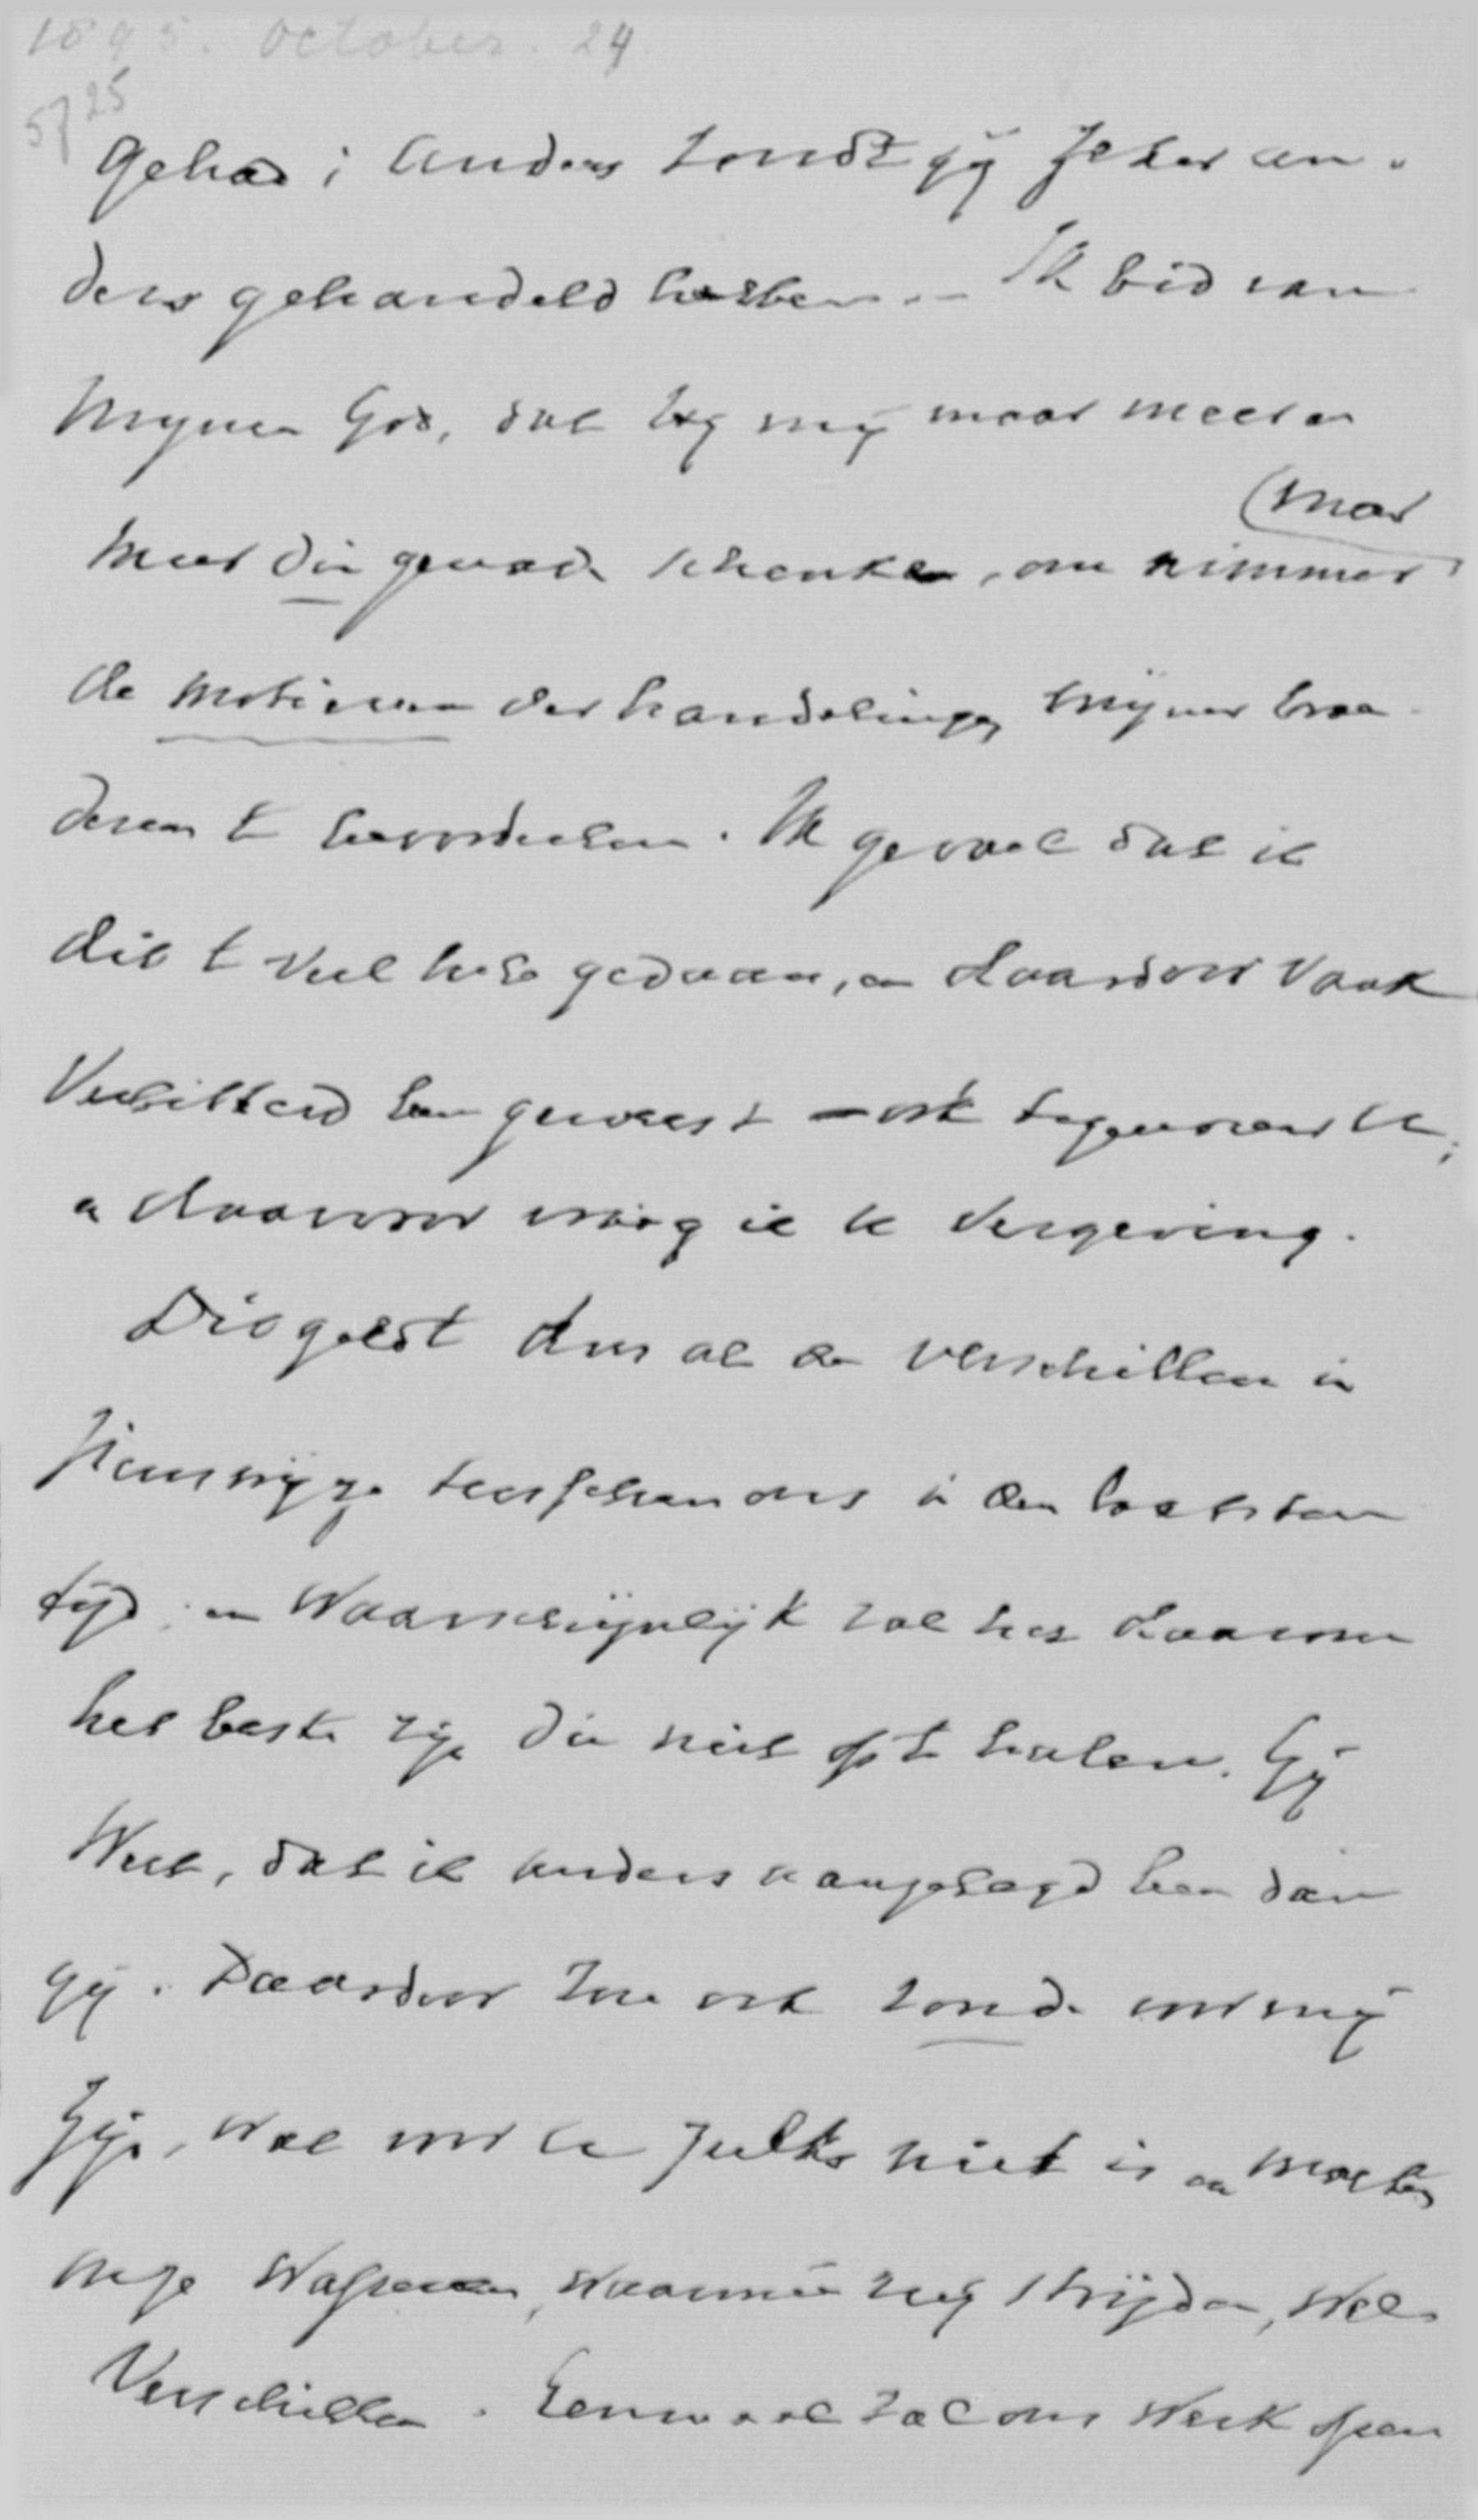 1895. October. 24
5725
gehad; anders zoudt gij zeker an-
ders gehandeld hebben. - Ik bid van
mijnen God, dat Hij mij maar meer en
(maar
meer die genade schenke, om nimmer
de motieven der handelingen mijner broe-
deren te beoordeelen. Ik gevoel dat ik
dit te veel heb gedaan, en daardoor vaak
verbitterd ben geweest - ook tegenover U;
en daarvoor vraag ik U vergeving.
Dit geldt dus al de verschillen in
zienswijze tusschen ons in den laatsten
tijd; en waarschijnlijk zal het daarom
het beste zijn die niet op te halen. Gij
weet, dat ik anders aangelegd ben dan
gij. Daardoor zou ook zonde voor mij
zijn, wat voor U zulks niet is en mogten
onze wapenen, waarmee wij strijden, wel
verschillen. Eenmaal zal ons werk open